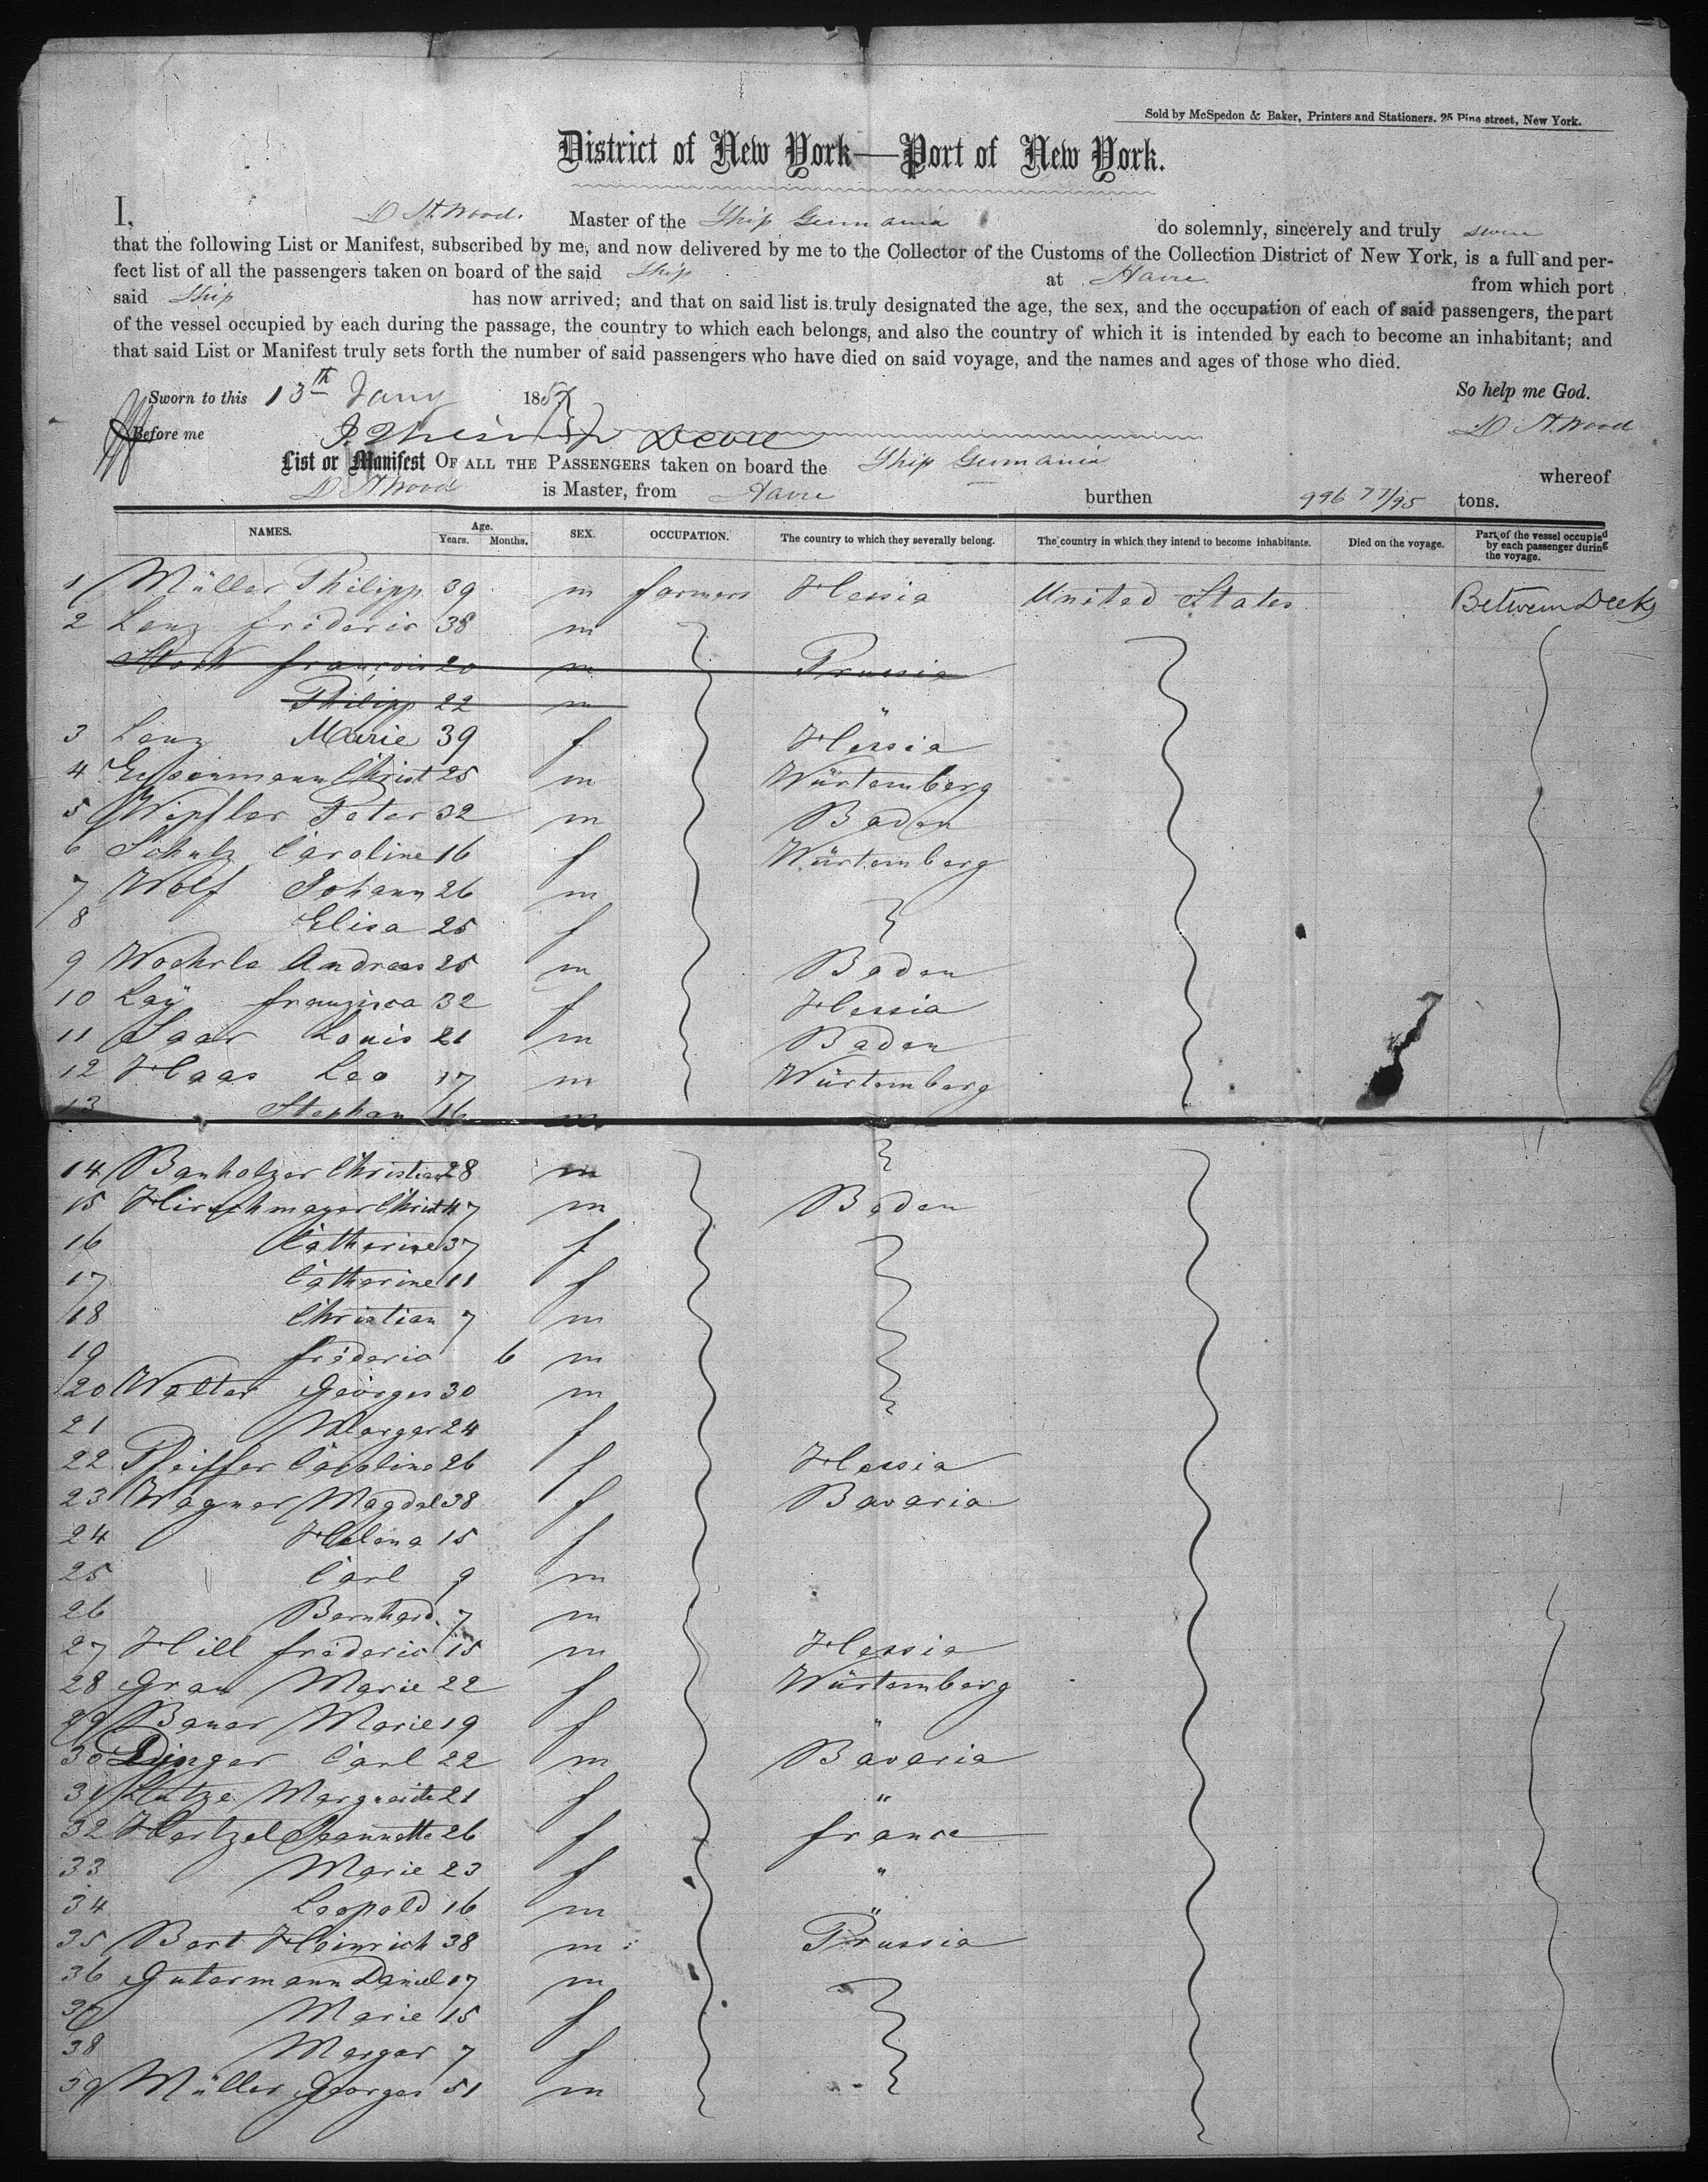 Sold by McSpedon & Baker, Printers and Stationers. 25 Pine street, New York.
District of New York—Port of New York.
I, D H. Wood. Master of the Ship Germania do solemnly, sincerely and truly swear
that the following List or Manifest, subscribed by me, and now delivered by me to the Collector of the Customs of the Collection District of New York, is a full and per-
fect list of all the passengers taken on board of the said Ship at Havre from which port
said Ship has now arrived; and that on said list is truly designated the age, the sex, and the occupation of each of said passengers, the part
of the vessel occupied by each during the passage, the country to which each belongs, and also the country of which it is intended by each to become an inhabitant; and
that said List or Manifest truly sets forth the number of said passengers who have died on said voyage, and the names and ages of those who died.
Sworn to this 13th Jany 185 So help me God.
Before me D H. Wood
List or Manifest OF ALL THE PASSENGERS taken on board the Ship Germania whereof
D H Wood is Master, from Havre burthen 996 77/95 tons.
NAMES. Age. Years. Months. SEX. OCCUPATION. The country to which they severally belong. The country in which they intend to become inhabitants. Died on the voyage. Part of the vessel occupied by each passenger during the voyage.
1 Müller Philipp 39 m farmers Hessia United States Between Deck
2 Lenz fréderic 38 m
françois 20 m Prussia
Philipp 22 m "
3 Lenz Marie 39 f Hessia
4 Christ 25 m Würtemberg
5 Wipfler Peter 32 m Baden
6 Schulz Caroline 16 f Würtemberg
7 Wolf Johann 26 m
8 Elisa 25 f
9 Woehrle Andreas 25 m Baden
10 Laÿ franzisca 32 f Hessia
11 Saar Louis 21 m Baden
12 Haas Leo 17 m Würtemberg
13 Stephan 16 m
14 Banholzer Christian 28 m
15 Hirschmayer Christ 47 m Baden
16 Catherine 37 f
17 Catherine 11 f
18 Christian 7 m
19 fréderic 6 m
20 Walter Georges 30 m
21 Margar 24 f
22 Pfeiffer Caroline 26 f Hessia
23 Wagner Magdal 38 f Bavaria
24 Helena 15 f
25 Carl 9 m
26 Bernhard 7 m
27 Hill fréderic 15 m Hessia
28 Grau Marie 22 f Würtemberg
29 Bauer Marie 19 f "
30 Dinger Carl 22 m Bavaria
31 Margueite 21 f "
32 Hertzel Jeannette 26 f france
33 Marie 23 f "
34 Leopold 16 m "
35 Bert Heinrich 38 m Prussia
36 Gutermann Daniel 17 m
37 Marie 15 f
38 Margar 7 f
39 Müller Georges 51 m